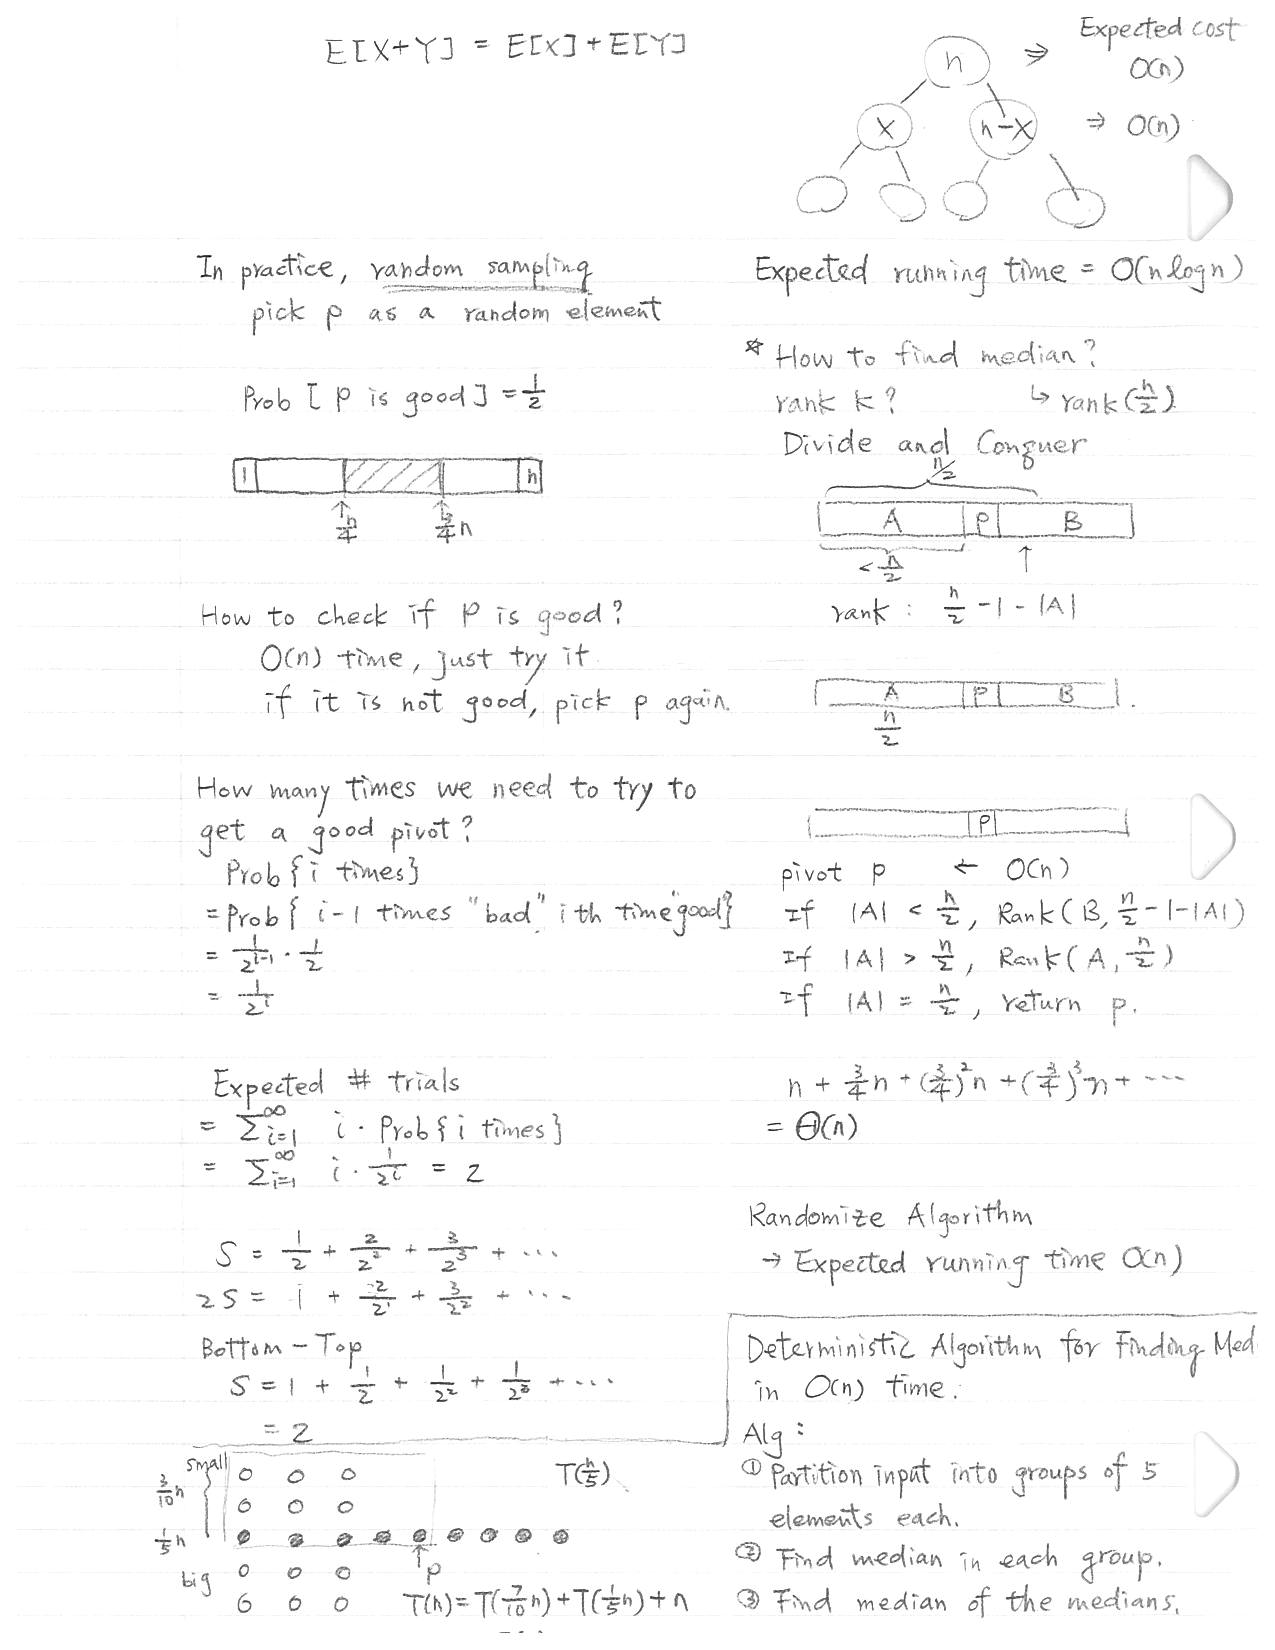 E[X+Y] = E[X]+E[Y]
In practice, random sampling
pick p as a random element
Prob [ P is good ] = 1/2
1 n
n/4 3/4 n
How to check if P is good?
O(n) time, just try it
if it is not good, pick p again.
How many times we need to try to
get a good pivot?
Prob{i times}
= Prob{ i-1 times "bad" ith time "good}
= 1/2^(i-1) · 1/2
= 1/2^i
Expected # trials
= Σ_{i=1}^∞ i · Prob{i times}
= Σ_{i=1}^∞ i · 1/2^i = 2
S = 1/2 + 2/2^2 + 3/2^3 + ...
2S = 1 + 2/2^1 + 3/2^2 + ...
Bottom - Top
S = 1 + 1/2 + 1/2^2 + 1/2^3 + ...
= 2
small
3/10 n
T(n/5)
1/5 n
big
p
T(n) = T(7/10 n) + T(1/5 n) + n
n ⇒ Expected cost
O(n)
X n-X ⇒ O(n)
Expected running time = O(n log n)
* How to find median?
rank k? ↳ rank(n/2)
Divide and Conquer
n/2
A P B
< n/2 ↑
rank : n/2 -1 - |A|
A P B
n/2
P
pivot p ← O(n)
If |A| < n/2, Rank(B, n/2 -1-|A|)
If |A| > n/2, Rank(A, n/2)
If |A| = n/2, return p.
n + 3/4 n + (3/4)^2 n + (3/4)^3 n + ...
= Θ(n)
Randomize Algorithm
→ Expected running time O(n)
Deterministic Algorithm for Finding Med
in O(n) time.
Alg :
① Partition input into groups of 5
elements each.
② Find median in each group.
③ Find median of the medians.